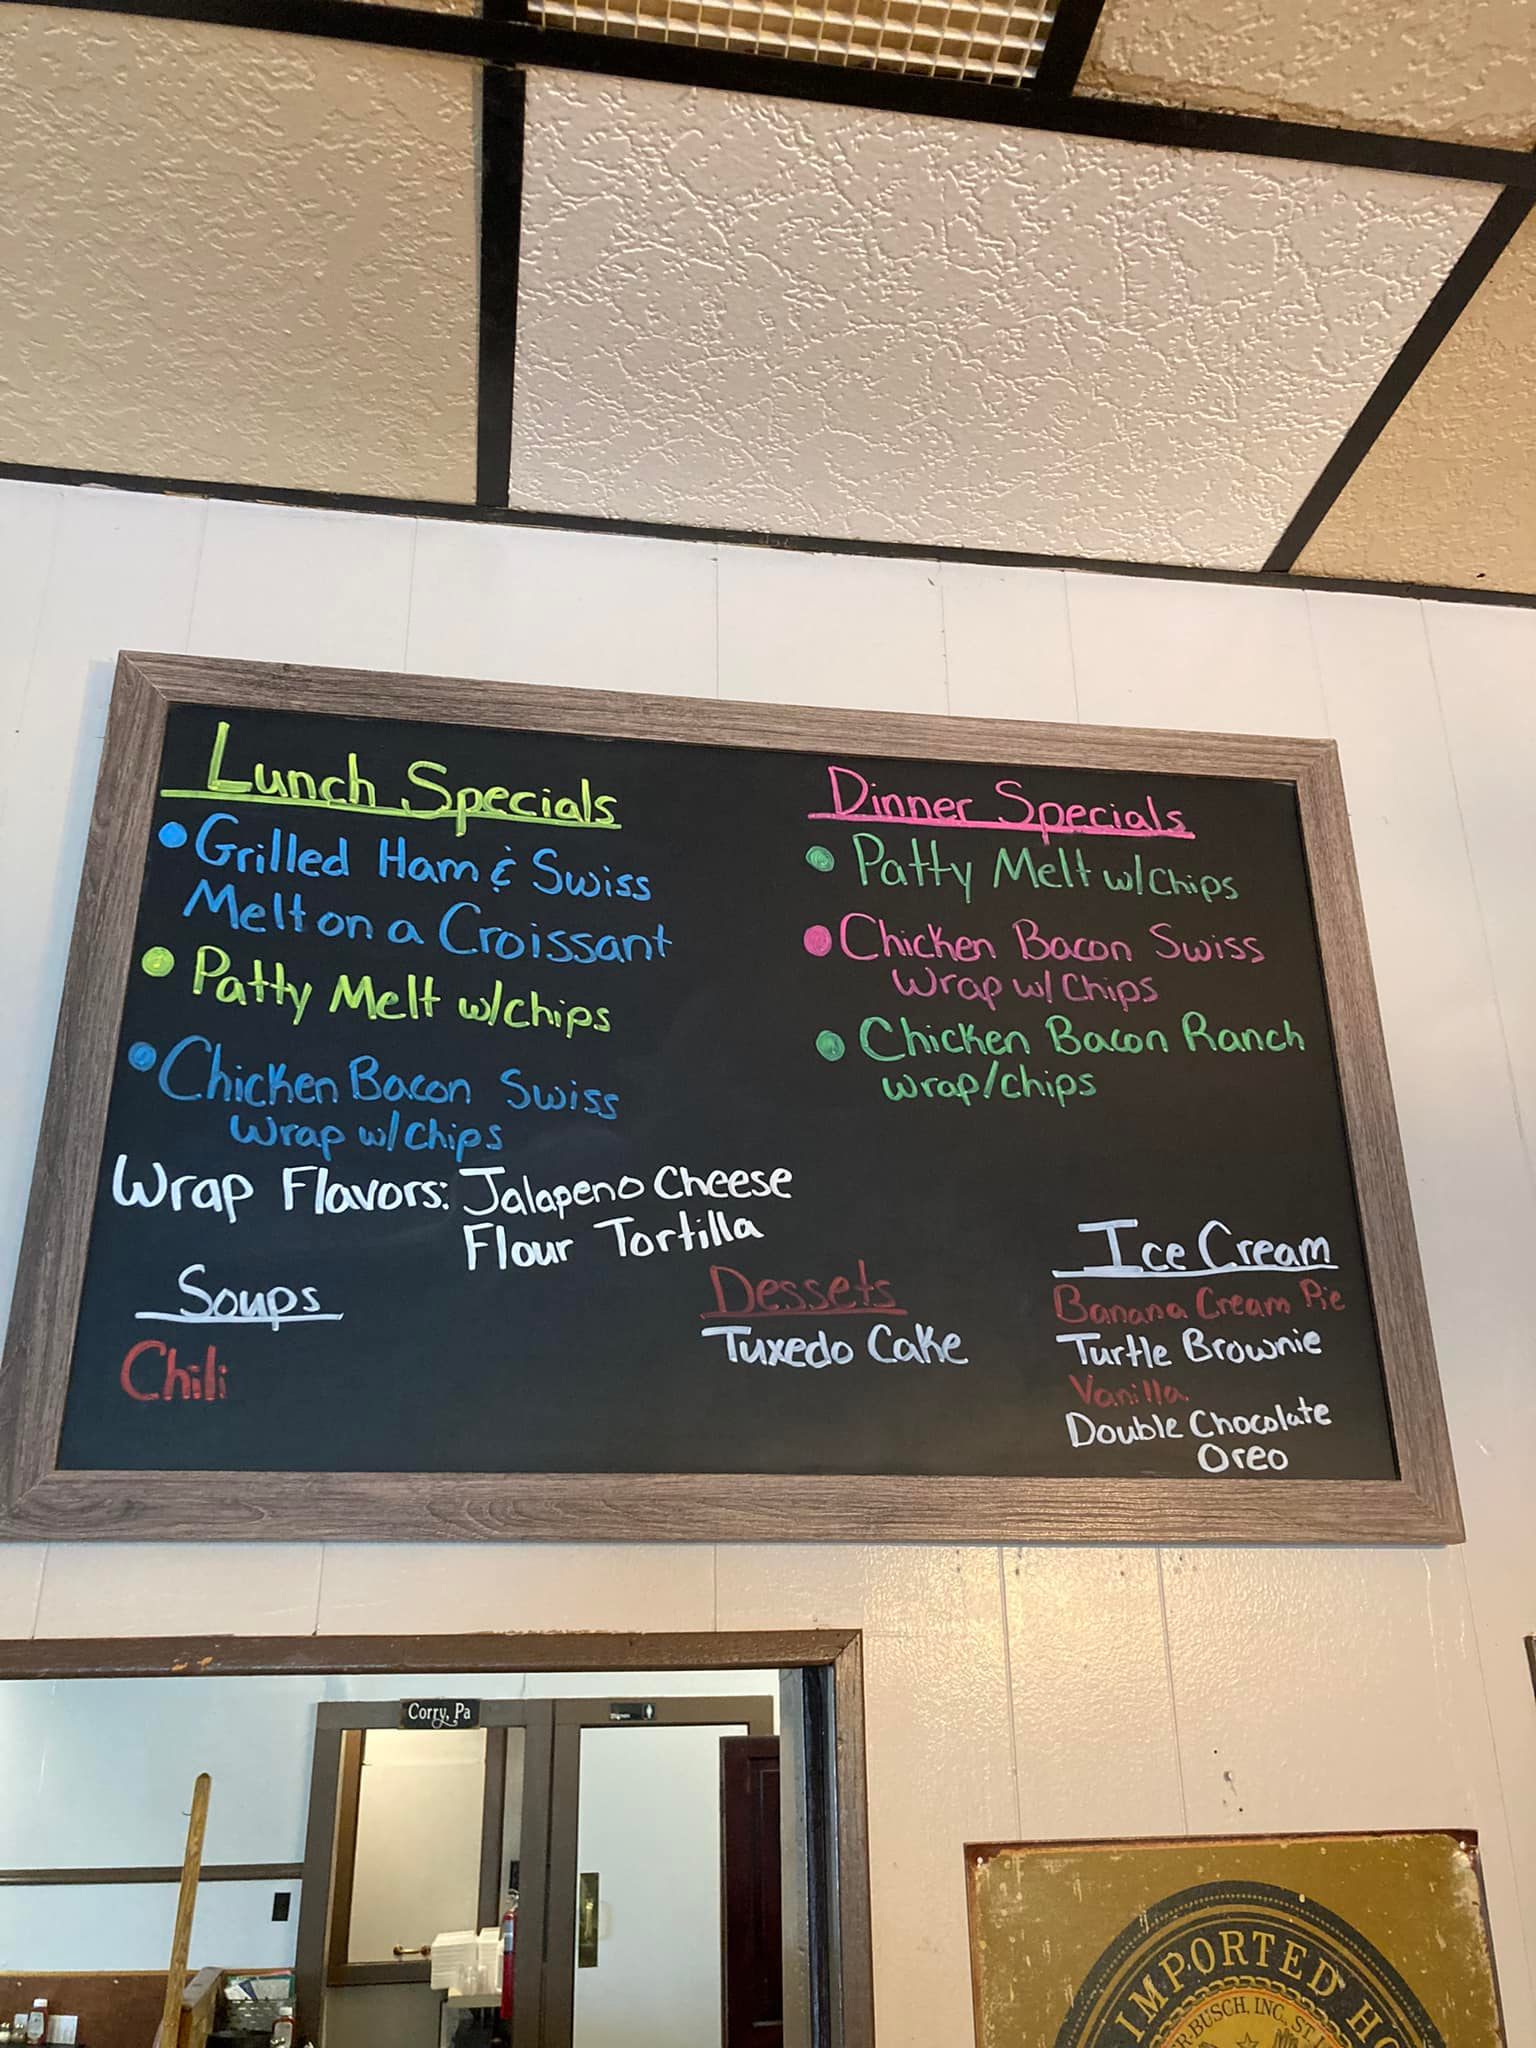 Lunch Specials
• Grilled Ham & Swiss
Melt on a Croissant
• Patty Melt w/chips
• Chicken Bacon Swiss
Wrap w/chips
Wrap Flavors: Jalapeno Cheese
Flour Tortilla
Dinner Specials
• Patty Melt w/chips
• Chicken Bacon Swiss
Wrap w/ Chips
• Chicken Bacon Ranch
wrap/chips
Soups
Chili
Dessets
Tuxedo Cake
Ice Cream
Banana Cream Pie
Turtle Brownie
Vanilla
Double Chocolate
Oreo
Corry, Pa
IMPORTED HO
R-BUSCH, INC., ST. L